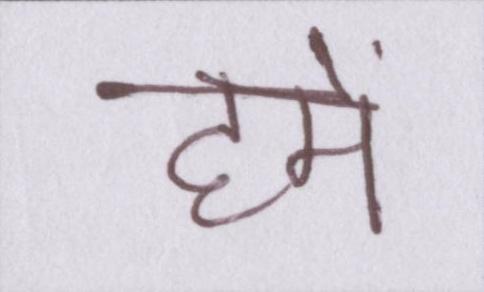 हमें